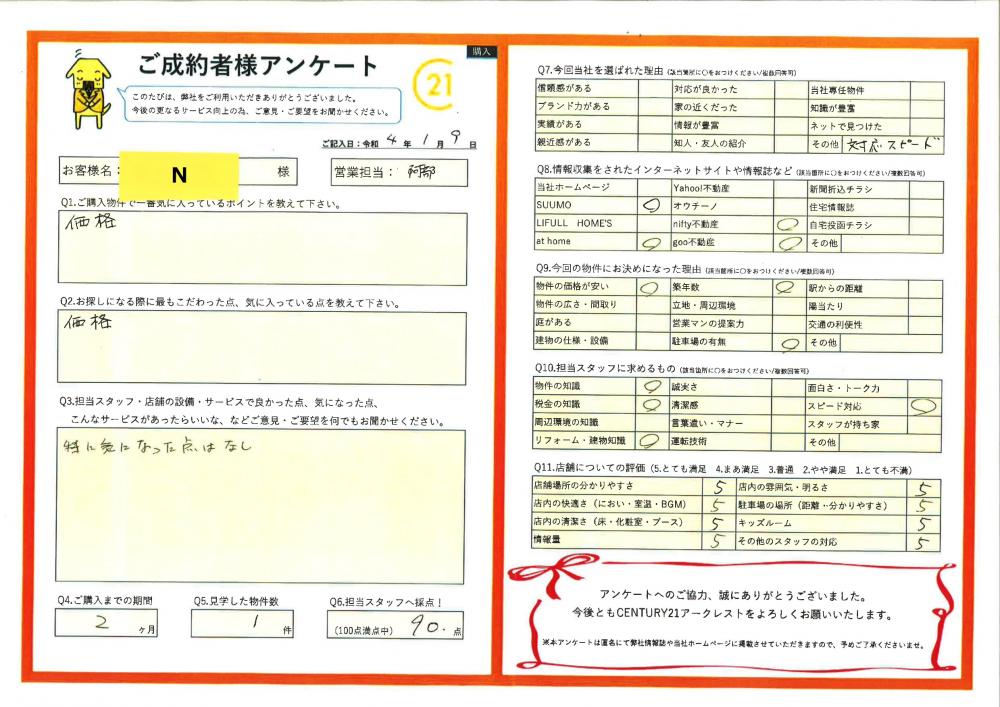 購入
ご成約者様アンケート
21
このたびは、弊社をご利用いただきありがとうございました。
今後の更なるサービス向上の為、ご意見・ご要望をお聞かせください。
ご記入日：令和 4 年 1 月 9 日
お客様名： N 様 営業担当： 阿部
Q1.ご購入物件で一番気に入っているポイントを教えて下さい。
価格
Q2.お探しになる際に最もこだわった点、気に入っている点を教えて下さい。
価格
Q3.担当スタッフ・店舗の設備・サービスで良かった点、気になった点、
こんなサービスがあったらいいな、などご意見・ご要望を何でもお聞かせください。
特に気になった点はなし
Q4.ご購入までの期間 Q5.見学した物件数 Q6.担当スタッフへ採点！
2 ヶ月 1 件 (100点満点中) 90. 点
Q7.今回当社を選ばれた理由（該当箇所に○をおつけください/複数回答可）
信頼感がある 対応が良かった 当社専任物件
ブランド力がある 家の近くだった 知識が豊富
実績がある 情報が豊富 ネットで見つけた
親近感がある 知人・友人の紹介 その他 対応スピード
Q8.情報収集をされたインターネットサイトや情報誌など（該当箇所に○をおつけください/複数回答可）
当社ホームページ Yahoo!不動産 新聞折込チラシ
SUUMO ○ オウチーノ 住宅情報誌
LIFULL HOME'S nifty不動産 ○ 自宅投函チラシ
at home ○ goo不動産 ○ その他
Q9.今回の物件にお決めになった理由（該当箇所に○をおつけください/複数回答可）
物件の価格が安い ○ 築年数 ○ 駅からの距離
物件の広さ・間取り 立地・周辺環境 陽当たり
庭がある 営業マンの提案力 交通の利便性
建物の仕様・設備 駐車場の有無 ○ その他
Q10.担当スタッフに求めるもの（該当箇所に○をおつけください/複数回答可）
物件の知識 ○ 誠実さ 面白さ・トーク力
税金の知識 ○ 清潔感 スピード対応 ○
周辺環境の知識 言葉遣い・マナー スタッフが持ち家
リフォーム・建物知識 ○ 運転技術 その他
Q11.店舗についての評価（5.とても満足 4.まあ満足 3.普通 2.やや満足 1.とても不満）
店舗場所の分かりやすさ 5 店内の雰囲気・明るさ 5
店内の快適さ（におい・室温・BGM） 5 駐車場の場所（距離・分かりやすさ） 5
店内の清潔さ（床・化粧室・ブース） 5 キッズルーム 5
情報量 5 その他のスタッフの対応 5
アンケートへのご協力、誠にありがとうございました。
今後ともCENTURY21アークレストをよろしくお願いいたします。
※本アンケートは匿名にて弊社情報誌や当社ホームページに掲載させていただきますので、予めご了承くださいませ。